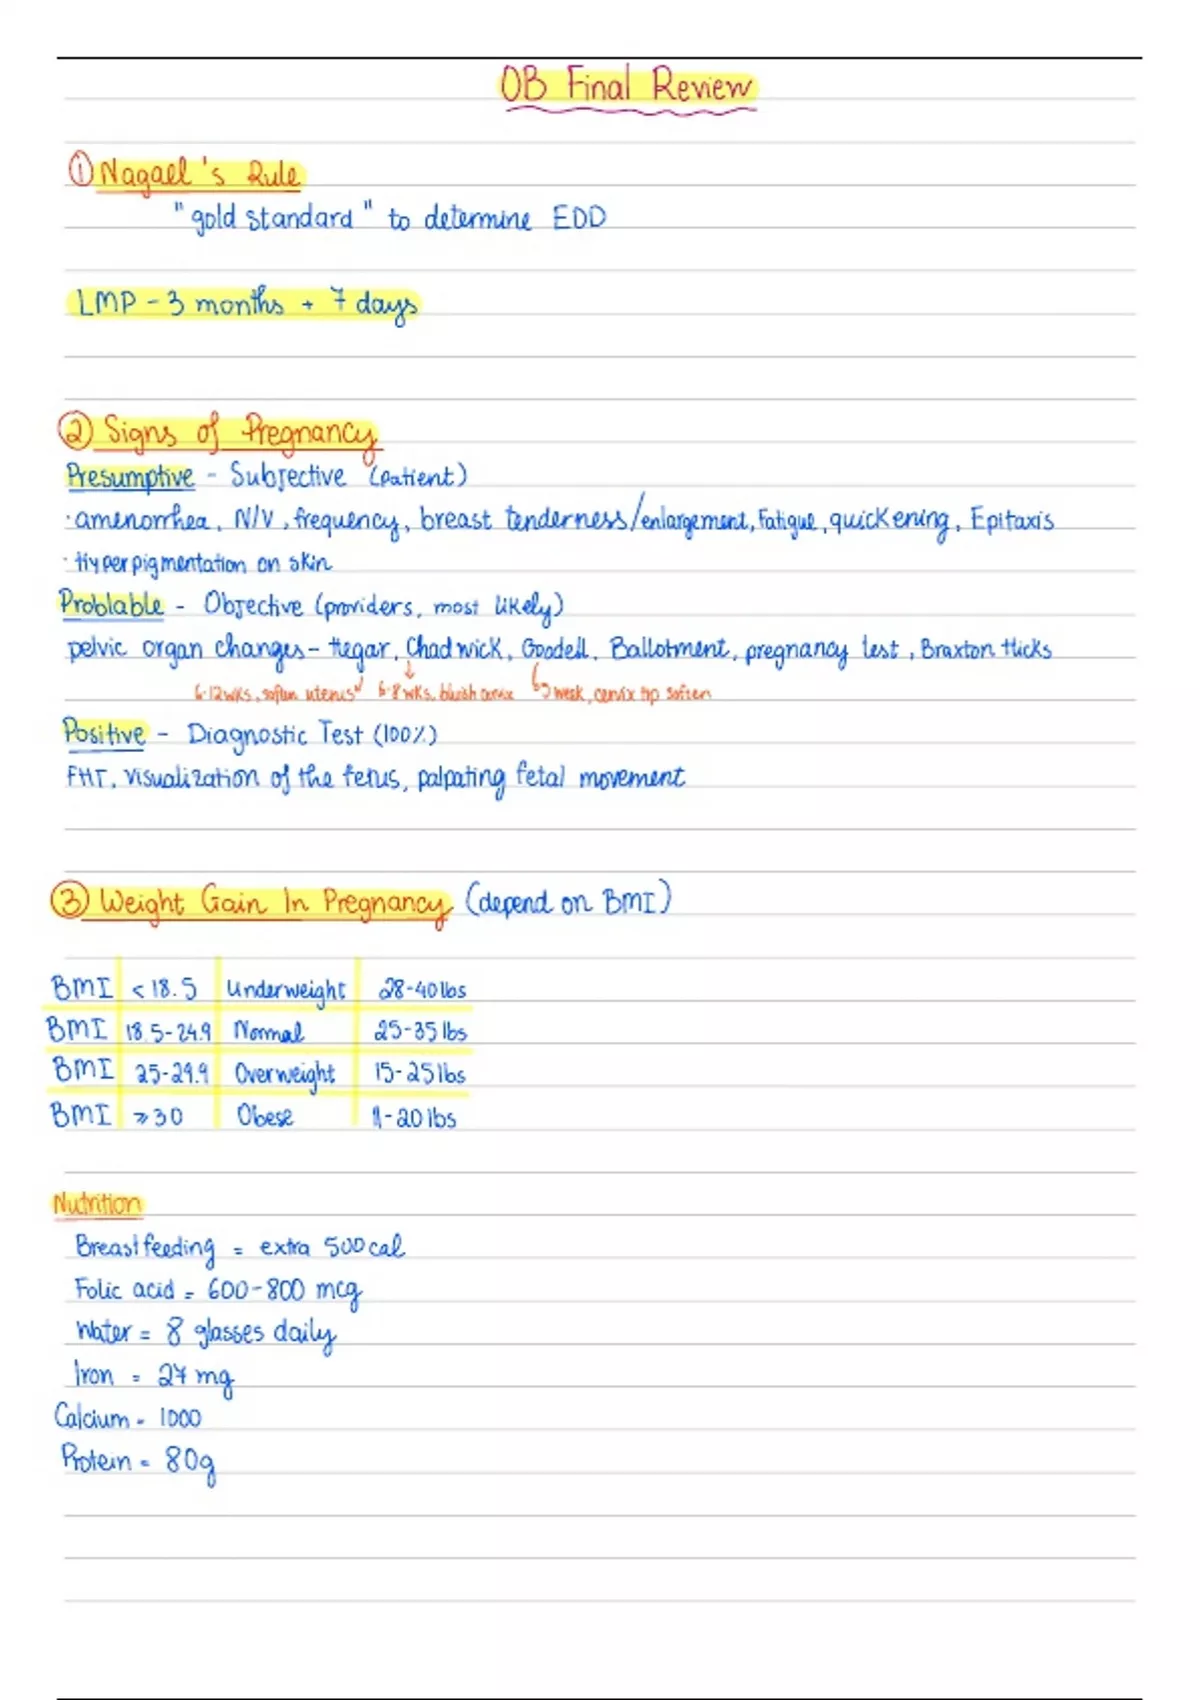 OB Final Review
① Nagael's Rule
"gold standard" to determine EDD
LMP - 3 months + 7 days
② Signs of Pregnancy
Presumptive - Subjective (patient)
· amenorrhea, N/V, frequency, breast tenderness/enlargement, Fatigue, quickening, Epitaxis
· Hyperpigmentation on skin
Problable - Objective (providers, most likely)
pelvic organ changes - Hegar, Chadwick, Goodell, Ballotment, pregnancy test, Braxton Hicks
6-12 wks, soften uterus 6-8 wks, bluish cervix 5 week, cervix tip soften
Positive - Diagnostic Test (100%)
FHT, Visualization of the fetus, palpating fetal movement
③ Weight Gain In Pregnancy (depend on BMI)
BMI < 18.5 Underweight 28-40 lbs
BMI 18.5-24.9 Normal 25-35 lbs
BMI 25-29.9 Overweight 15-25 lbs
BMI ≥ 30 Obese 11-20 lbs
Nutrition
Breastfeeding = extra 500 cal
Folic acid = 600-800 mcg
Water = 8 glasses daily
Iron = 27 mg
Calcium = 1000
Protein = 80g